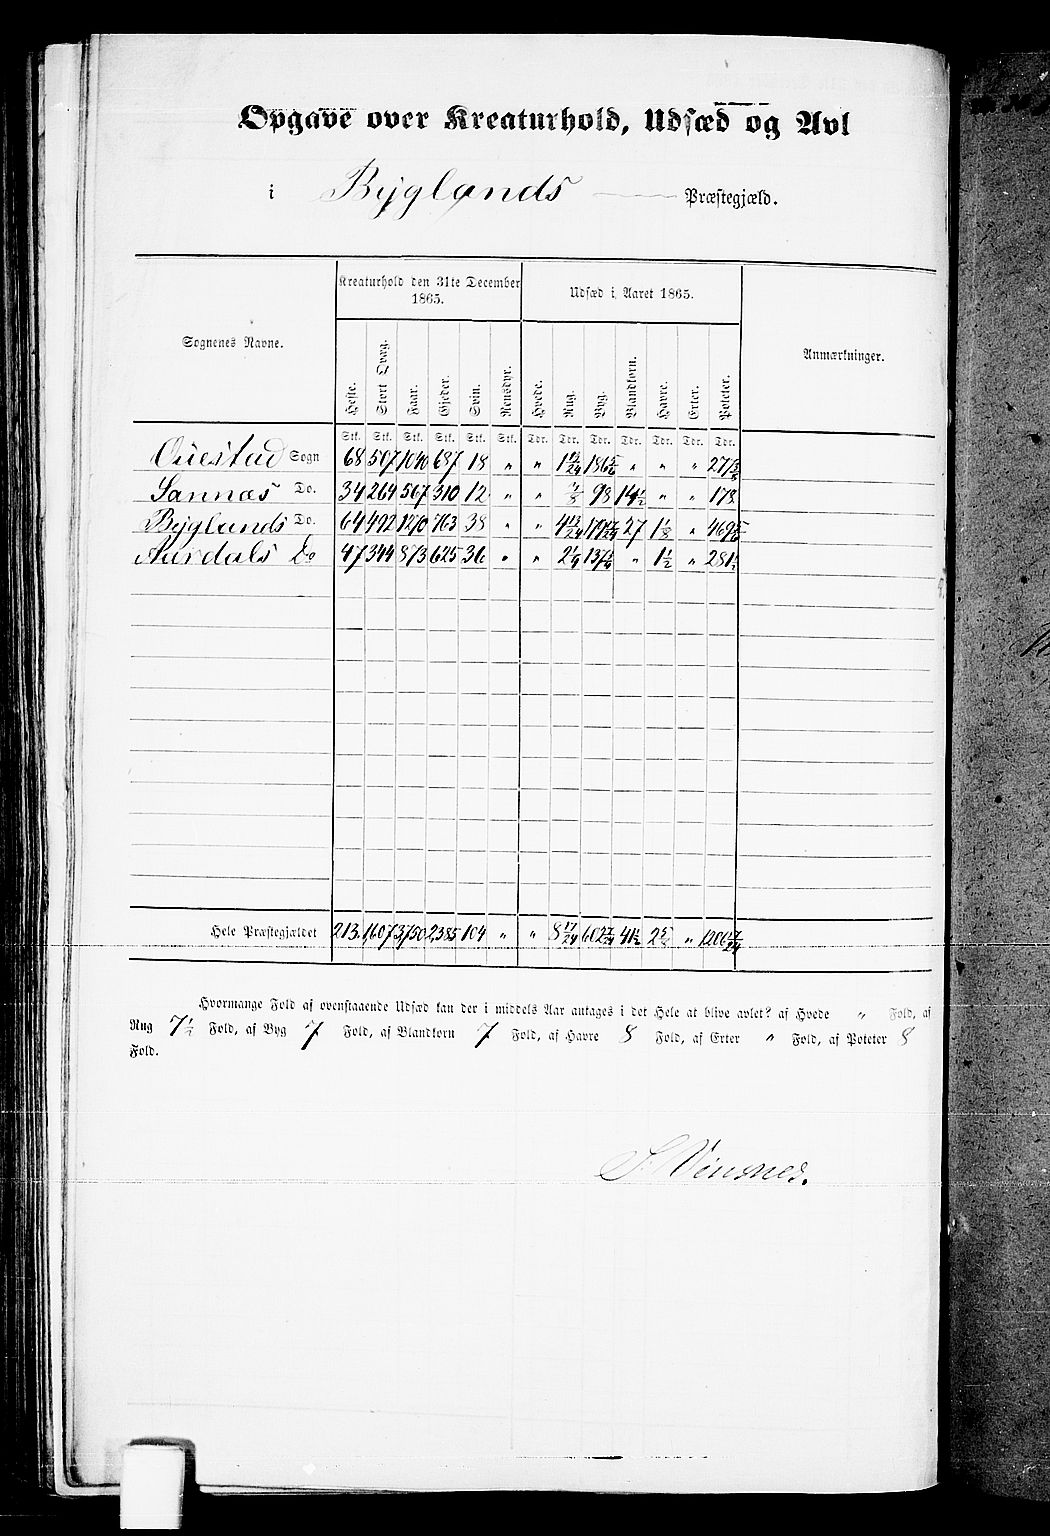 Opgave over Kreaturhold, Udsæd og Avl
i Byglands Præstegjæld.
Sognenes Navne. Kreaturhold den 31te December 1865. Udsæd i Aaret 1865. Anmærkninger.
Heste. Stort Kvæg. Faar. Gjeder. Sviin. Rensdyr. Hvede. Rug. Byg. Blandkorn. Havre. Erter. Poteter.
Stk. Stk. Stk. Stk. Stk. Stk. Tdr. Tdr. Tdr. Tdr. Tdr. Tdr. Tdr.
Ouestad Sogn 68 507 1040 687 18 " " 186 5/6 " " "
Sannæs Do. 34 264 567 310 12 " " 98 14 1/2 " " 178
Byglands Do. 64 492 1270 763 38 " " 27 1 1/8 " 469 5/6
Aardals Do 47 344 873 625 36 " " " 1 1/2 "
Hele Præstegjældet 213. 1607 3750 2385 104 " " 8 17/24 41 1/2 2 5/8 " 1206 17/24
Hvormange Fold af ovenstaaende Udsæd kan der i middels Aar antages i det Hele at blive avlet? af Hvede " Fold, af
Rug 7 1/2 Fold, af Byg 7 Fold, af Blandkorn 7 Fold, af Havre 8 Fold, af Erter " Fold, af Poteter 8
Fold.